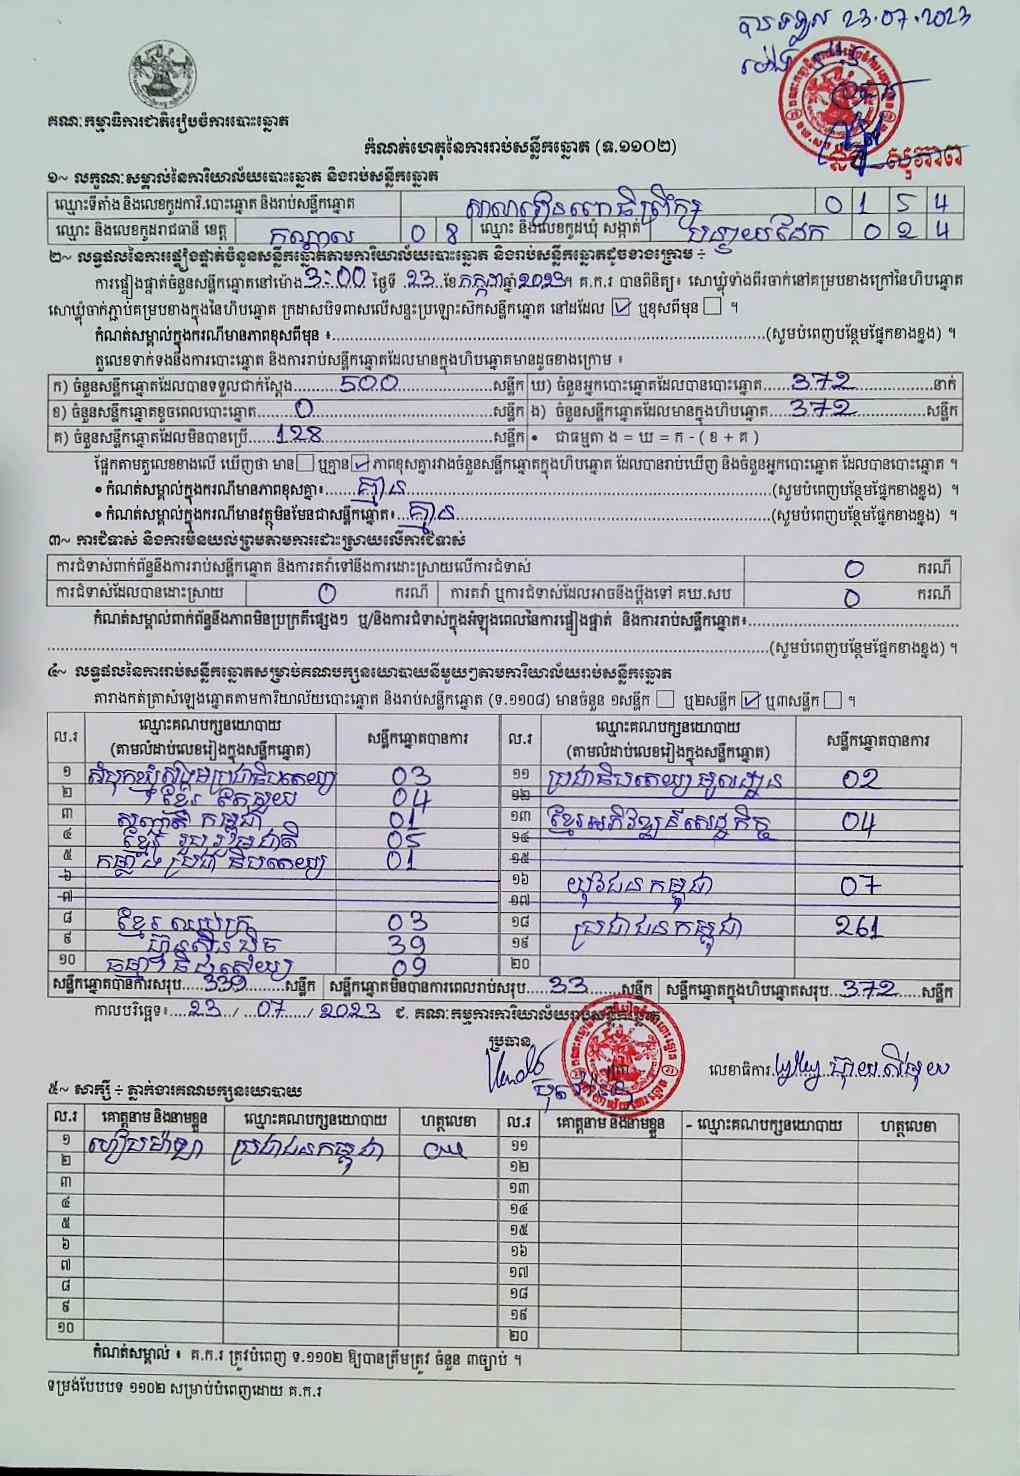 បានទទួល 23.07.2023
ម៉ោង
គណៈកម្មាធិការជាតិរៀបចំការបោះឆ្នោត
កំណត់ហេតុនៃការរាប់សន្លឹកឆ្នោត (ទ.១១០២)
១~ លក្ខណៈសម្គាល់នៃការិយាល័យបោះឆ្នោត និងរាប់សន្លឹកឆ្នោត
ឈ្មោះទីតាំង និងលេខកូដការិ.បោះឆ្នោត និងរាប់សន្លឹកឆ្នោត សាលារៀនពោធិព្រឹក្ស 0 1 5 4
ឈ្មោះ និងលេខកូដរាជធានី ខេត្ត កណ្តាល 0 8 ឈ្មោះ និងលេខកូដឃុំ សង្កាត់ បន្ទាយដែក 0 2 4
២~ លទ្ធផលនៃការផ្ទៀងផ្ទាត់ចំនួនសន្លឹកឆ្នោតតាមការិយាល័យបោះឆ្នោត និងរាប់សន្លឹកឆ្នោតដូចខាងក្រោម ÷
ការផ្ទៀងផ្ទាត់ចំនួនសន្លឹកឆ្នោតនៅម៉ោង 3:00 ថ្ងៃទី 23 ខែ កក្កដា ឆ្នាំ 2023។ គ.ក.រ បានពិនិត្យ៖ សោឃ្លុំទាំងពីរចាក់នៅគម្របខាងក្រៅនៃហិបឆ្នោត
សោឃ្លុំចាក់ភ្ជាប់គម្របខាងក្នុងនៃហិបឆ្នោត ក្រដាសបិទពាសលើសន្ទះប្រឡោះស៊កសន្លឹកឆ្នោត នៅដដែល ☑ ឬខុសពីមុន ☐ ។
កំណត់សម្គាល់ក្នុងករណីមានភាពខុសពីមុន ៖ (សូមបំពេញបន្ថែមផ្នែកខាងខ្នង) ។
តួលេខទាក់ទងនឹងការបោះឆ្នោត និងការរាប់សន្លឹកឆ្នោតដែលមានក្នុងហិបឆ្នោតមានដូចខាងក្រោម ៖
ក) ចំនួនសន្លឹកឆ្នោតដែលបានទទួលជាក់ស្តែង 500 សន្លឹក ឃ) ចំនួនអ្នកបោះឆ្នោតដែលបានបោះឆ្នោត 372 នាក់
ខ) ចំនួនសន្លឹកឆ្នោតខូចពេលបោះឆ្នោត 0 សន្លឹក ង) ចំនួនសន្លឹកឆ្នោតដែលមានក្នុងហិបឆ្នោត 372 សន្លឹក
គ) ចំនួនសន្លឹកឆ្នោតដែលមិនបានប្រើ 128 សន្លឹក • ជាធម្មតា ង = ឃ = ក - ( ខ + គ )
ផ្អែកតាមតួលេខខាងលើ ឃើញថា មាន ☐ ឬគ្មាន ☑ ភាពខុសគ្នារវាងចំនួនសន្លឹកឆ្នោតក្នុងហិបឆ្នោត ដែលបានរាប់ឃើញ និងចំនួនអ្នកបោះឆ្នោត ដែលបានបោះឆ្នោត ។
• កំណត់សម្គាល់ក្នុងករណីមានភាពខុសគ្នា៖ គ្មាន (សូមបំពេញបន្ថែមផ្នែកខាងខ្នង) ។
• កំណត់សម្គាល់ក្នុងករណីមានវត្ថុមិនមែនជាសន្លឹកឆ្នោត៖ គ្មាន (សូមបំពេញបន្ថែមផ្នែកខាងខ្នង) ។
៣~ ការជំទាស់ និងការមិនយល់ព្រមតាមការដោះស្រាយលើការជំទាស់
ការជំទាស់ពាក់ព័ន្ធនឹងការរាប់សន្លឹកឆ្នោត និងការតវ៉ាទៅនឹងការដោះស្រាយលើការជំទាស់ 0 ករណី
ការជំទាស់ដែលបានដោះស្រាយ 0 ករណី ការតវ៉ា ឬការជំទាស់ដែលអាចនឹងប្តឹងទៅ គឃ.សប 0 ករណី
កំណត់សម្គាល់ពាក់ព័ន្ធនឹងភាពមិនប្រក្រតីផ្សេងៗ ឬ/និងការជំទាស់ក្នុងអំឡុងពេលនៃការផ្ទៀងផ្ទាត់ និងការរាប់សន្លឹកឆ្នោត៖
(សូមបំពេញបន្ថែមផ្នែកខាងខ្នង) ។
៤~ លទ្ធផលនៃការរាប់សន្លឹកឆ្នោតសម្រាប់គណបក្សនយោបាយនីមួយៗតាមការិយាល័យរាប់សន្លឹកឆ្នោត
តារាងកត់ត្រាសំឡេងឆ្នោតតាមការិយាល័យបោះឆ្នោត និងរាប់សន្លឹកឆ្នោត (ទ.១១០៨) មានចំនួន ១សន្លឹក ☐ ឬ២សន្លឹក ☑ ឬ៣សន្លឹក ☐ ។
ល.រ ឈ្មោះគណបក្សនយោបាយ (តាមលំដាប់លេខរៀងក្នុងសន្លឹកឆ្នោត) សន្លឹកឆ្នោតបានការ ល.រ ឈ្មោះគណបក្សនយោបាយ (តាមលំដាប់លេខរៀងក្នុងសន្លឹកឆ្នោត) សន្លឹកឆ្នោតបានការ
១ សំបុកឃ្មុំសង្គមប្រជាធិបតេយ្យ 03 ១១ ប្រជាធិបតេយ្យមូលដ្ឋាន 02
២ ខ្មែរតែមួយ 04 ១២
៣ សញ្ជាតិកម្ពុជា 01 ១៣ ខ្មែរអភិវឌ្ឍន៍សេដ្ឋកិច្ច 04
៤ ខ្មែររួបរួមជាតិ 05 ១៤
៥ កម្លាំងប្រជាធិបតេយ្យ 01 ១៥
៦ ១៦ យុវជនកម្ពុជា 07
៧ ១៧
៨ ខ្មែរឈប់ក្រ 03 ១៨ ប្រជាជនកម្ពុជា 261
៩ ហ៊្វុនស៊ិនប៉ិច 39 ១៩
១០ ធម្មាធិបតេយ្យ 09 ២០
សន្លឹកឆ្នោតបានការសរុប 339 សន្លឹក សន្លឹកឆ្នោតមិនបានការពេលរាប់សរុប 33 សន្លឹក សន្លឹកឆ្នោតក្នុងហិបឆ្នោតសរុប 372 សន្លឹក
កាលបរិច្ឆេទ៖ 23 / 07 / 2023 ជ. គណៈកម្មការការិយាល័យរាប់សន្លឹកឆ្នោត
ប្រធាន
លេខាធិការ
៥~ សាក្សី ÷ ភ្នាក់ងារគណបក្សនយោបាយ
ល.រ គោត្តនាម និងនាមខ្លួន ឈ្មោះគណបក្សនយោបាយ ហត្ថលេខា ល.រ គោត្តនាម និងនាមខ្លួន ឈ្មោះគណបក្សនយោបាយ ហត្ថលេខា
១ ហៀបម៉ាឡា ប្រជាជនកម្ពុជា ១១
២ ១២
៣ ១៣
៤ ១៤
៥ ១៥
៦ ១៦
៧ ១៧
៨ ១៨
៩ ១៩
១០ ២០
កំណត់សម្គាល់ ៖ គ.ក.រ ត្រូវបំពេញ ទ.១១០២ ឱ្យបានត្រឹមត្រូវ ចំនួន ៣ច្បាប់ ។
ទម្រង់បែបបទ ១១០២ សម្រាប់បំពេញដោយ គ.ក.រ